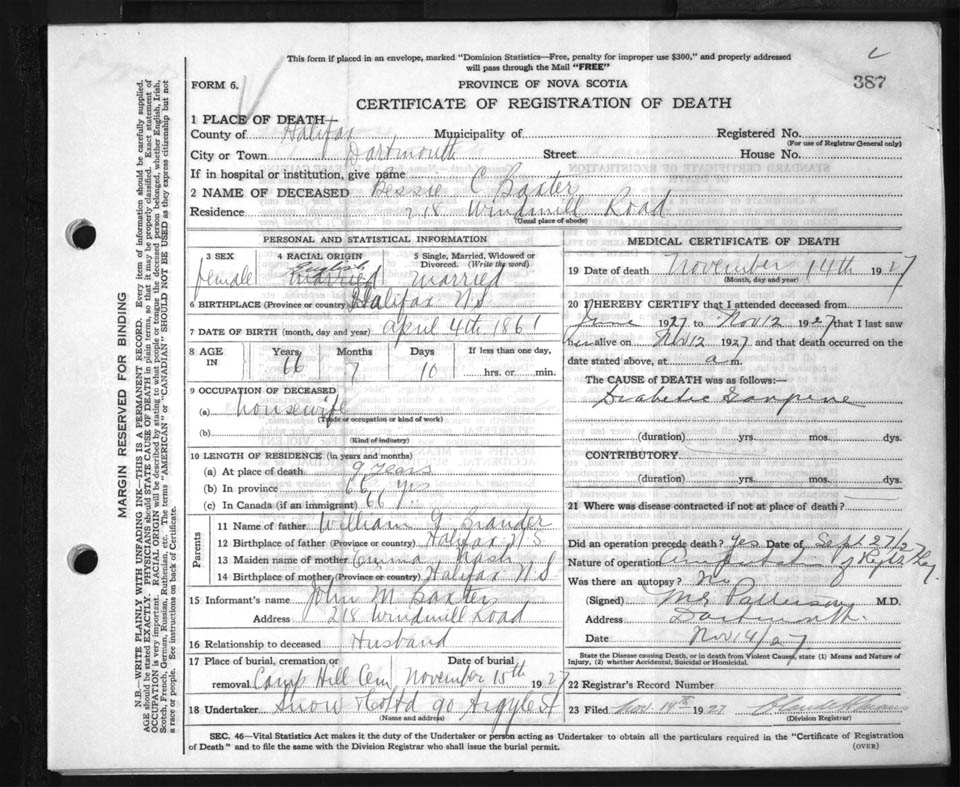 This form if placed in an envelope, marked "Dominion Statistics—Free, penalty for improper use $300," and properly addressed
will pass through the Mail "FREE"
FORM 6.
PROVINCE OF NOVA SCOTIA
387
CERTIFICATE OF REGISTRATION OF DEATH
1 PLACE OF DEATH—
County of Halifax Municipality of Registered No.
(For use of Registrar General only)
City or Town Dartmouth Street House No.
If in hospital or institution, give name
2 NAME OF DECEASED Bessie C Baxter
Residence 218 Windmill Road
(Usual place of abode)
PERSONAL AND STATISTICAL INFORMATION
3 SEX 4 RACIAL ORIGIN 5 Single, Married, Widowed or
Divorced. (Write the word)
female English married married
6 BIRTHPLACE (Province or country) Halifax N S
7 DATE OF BIRTH (month, day and year) april 4th 1861
8 AGE IN Years Months Days If less than one day,
66 7 10 hrs. or min.
9 OCCUPATION OF DECEASED
(a) housewife
(Trade or occupation or kind of work)
(b)
(Kind of industry)
10 LENGTH OF RESIDENCE (in years and months)
(a) At place of death 9 years
(b) In province 66 yrs
(c) In Canada (if an immigrant) 66 yrs
Parents
11 Name of father William J Brander
12 Birthplace of father (Province or country) Halifax N S
13 Maiden name of mother Emma Nash
14 Birthplace of mother (Province or country) Halifax N S
15 Informant's name John M Baxter
Address 218 Windmill Road
16 Relationship to deceased Husband
17 Place of burial, cremation or Date of burial
removal Camp Hill Cem November 15th 1927
18 Undertaker Snow & Co Ltd 90 Argyle St
(Name and address)
MEDICAL CERTIFICATE OF DEATH
19 Date of death November 14th 1927
(Month, day and year)
20 I HEREBY CERTIFY that I attended deceased from
June 1927 to Nov 12 1927 that I last saw
her alive on Nov 12 1927 and that death occurred on the
date stated above, at a m.
The CAUSE OF DEATH was as follows:—
Diabetic Gangrene
(duration) yrs. mos. dys.
CONTRIBUTORY
(duration) yrs. mos. dys.
21 Where was disease contracted if not at place of death?
Did an operation precede death? Yes Date of Sept 27/27
Nature of operation Amputation of Right Leg.
Was there an autopsy? No
(Signed) M.D.
Address Dartmouth.
Date Nov 14/27
State the Disease causing Death, or in death from Violent Causes, state (1) Means and Nature of
Injury, (2) whether Accidental, Suicidal or Homicidal.
22 Registrar's Record Number
23 Filed Nov. 19th 1927
(Division Registrar)
SEC. 46—Vital Statistics Act makes it the duty of the Undertaker or person acting as Undertaker to obtain all the particulars required in the "Certificate of Registration
of Death" and to file the same with the Division Registrar who shall issue the burial permit.
(OVER)
MARGIN RESERVED FOR BINDING
N.B.—WRITE PLAINLY WITH UNFADING INK—THIS IS A PERMANENT RECORD. Every item of information should be carefully supplied.
AGE should be stated EXACTLY. PHYSICIANS should STATE CAUSE OF DEATH in plain terms, so that it may be properly classified. Exact statement of
OCCUPATION is very important. RACIAL ORIGIN will be described by stating to what people or tongue the deceased person belonged, whether English, Irish,
Scotch, French, German, Russian, Ruthenian, etc. The terms "AMERICAN" or "CANADIAN" SHOULD NOT BE USED as they express citizenship but not
a race or people. See instructions on back of Certificate.